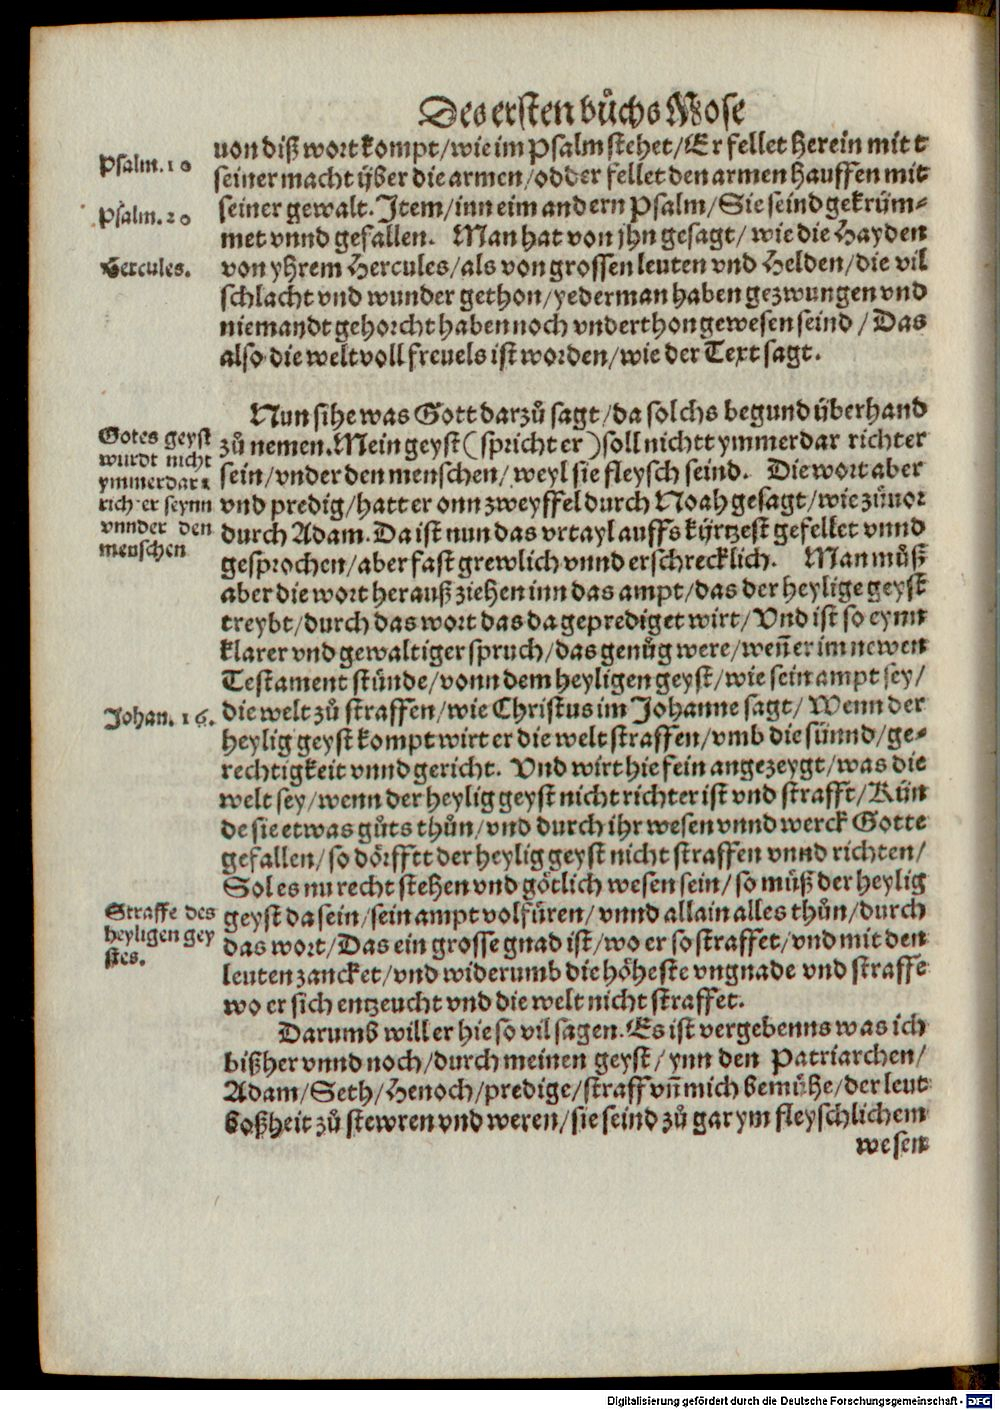 Des ersten bůchs Mose
uon diß wort kompt/wie im Psalm stehet/Er fellet herein mitt
Psalm.10
seiner macht über die armen/odder fellet den armen hauffen mit
Psalm.20
seiner gewalt. Item/inn eim andern Psalm/Sie seind gekrüm⸗
met vnnd gefallen. Man hat von jhn gesagt/ wie die Hayden
Hercules.
von yhrem Hercules/als von grossen leuten vnd Helden/die vil
schlacht vnd wunder gethon/yederman haben gezwungen vnd
niemandt gehorcht haben noch vnderthon gewesen seind/Das
also die welt voll freuels ist worden/wie der Text sagt.
Nun sihe was Gott darzů sagt/da solchs begund überhand
Gotes geyst
wurdt nicht
ymmerdar
richter seynn
vnnder den
menschen
zů nemen.Mein geyst(spricht er)soll nichtt ymmerdar richter
sein/vnder den menschen/weyl sie fleysch seind. Die wort aber
vnd predig/hatt er onn zweyffel durch Noah gesagt/wie zůuor
durch Adam. Da ist nun das vrtayl auffs kürtzest gefellet vnnd
gesprochen/aber fast grewlich vnnd erschrecklich. Man můß
aber die wort herauß ziehen inn das ampt/das der heylige geyst
treybt/durch das wort das da geprediget wirt/Vnd ist so eynn
klarer vnd gewaltiger spruch/das genůg were/weñ er im newen
Testament stünde/vonn dem heyligen geyst/wie sein ampt sey/
Johan. 16.
die welt zů straffen/wie Christus im Johanne sagt/ Wenn der
heylig geyst kompt wirt er die welt straffen/vmb die sünnd/ge⸗
rechtigkeit vnnd gericht. Vnd wirt hie fein angezeygt/was die
welt sey/wenn der heylig geyst nicht richter ist vnd strafft/Kün
de sie etwas gůts thůn/vnd durch ihr wesen vnnd werck Gotte
gefallen/so dörfftt der heylig geyst nicht straffen vnnd richten/
Sol es nu recht stehen vnd götlich wesen sein/so můß der heylig
Straffe des
heyligen gey
stes.
geyst da sein/sein ampt volfüren/vnnd allain alles thůn/durch
das wort/Das ein grosse gnad ist/wo er so straffet/vnd mit den
leuten zancket/vnd widerumb die höheste vngnade vnd straffe
wo er sich entzeucht vnd die welt nicht straffet.
Darumb will er hie so vil sagen.Es ist vergebenns was ich
bißher vnnd noch/durch meinen geyst/ynn den Patriarchen/
Adam/Seth/Henoch/predige/straff vñ mich bemühe/der leut
boßheit zů stewren vnd weren/sie seind zů gar ym fleyschlichem
wesen
Digitalisierung gefördert durch die Deutsche Forschungsgemeinschaft - DFG